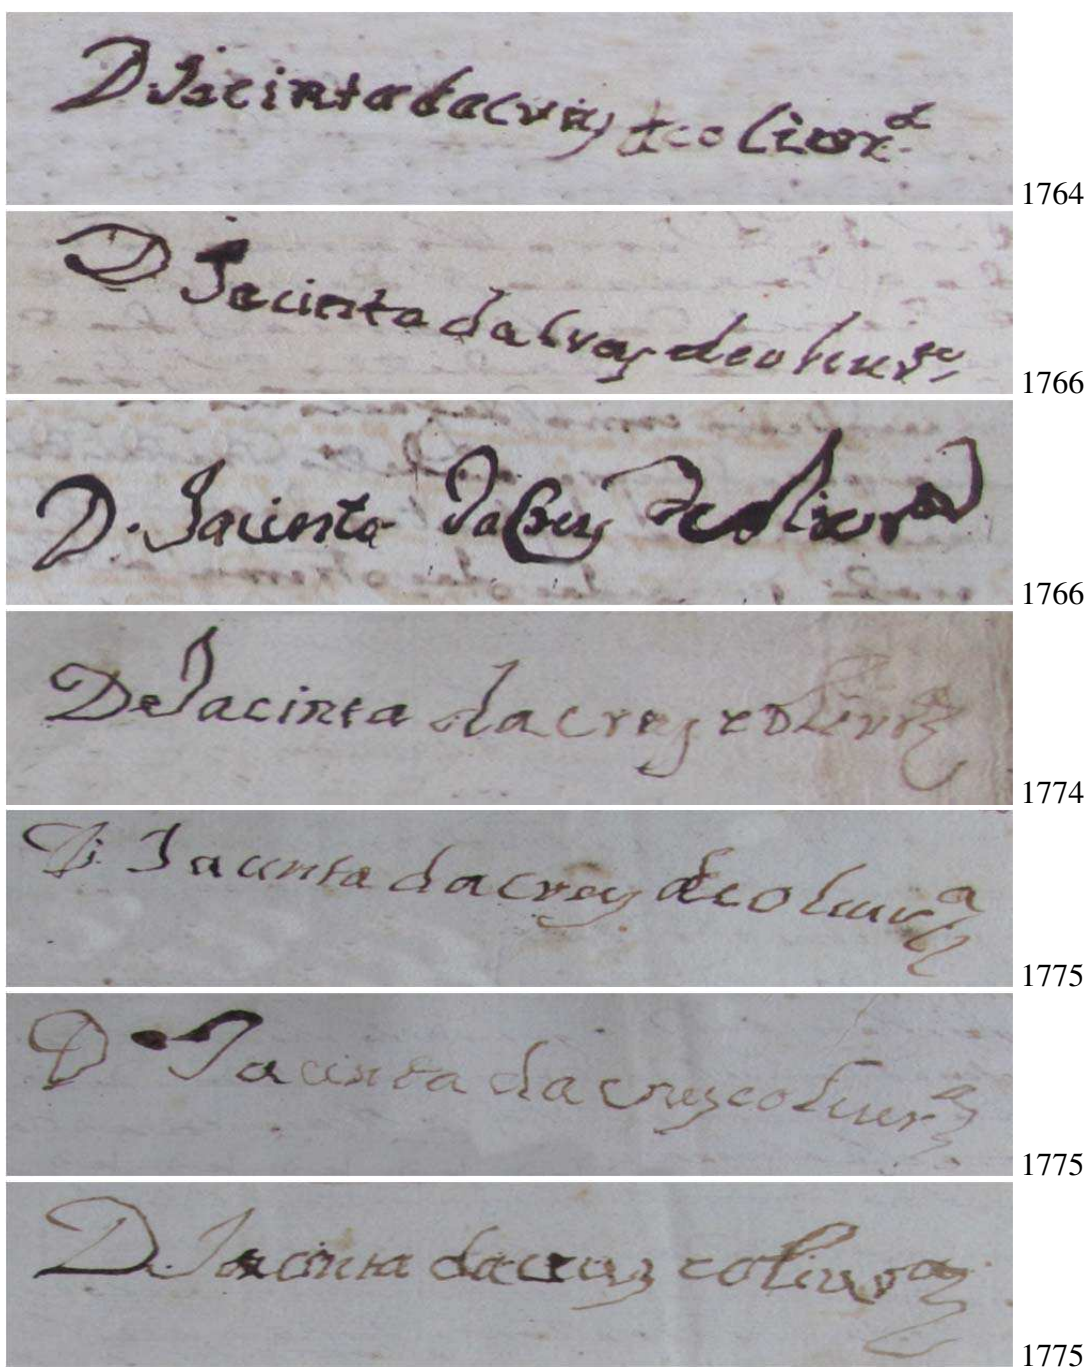 D. Jacinta da cruz de olivr.ª
1764
D Jacinta da Cruz de oliur.ª
1766
D. Jacinta da Cruz de olivr.ª
1766
De Jacinta da cruz e olivr.ª
1774
D. Jacinta da cruz de oliur.ª
1775
D Jacinta da cruz e oliur.ª
1775
D. Jacinta da cruz e oliur.ª
1775